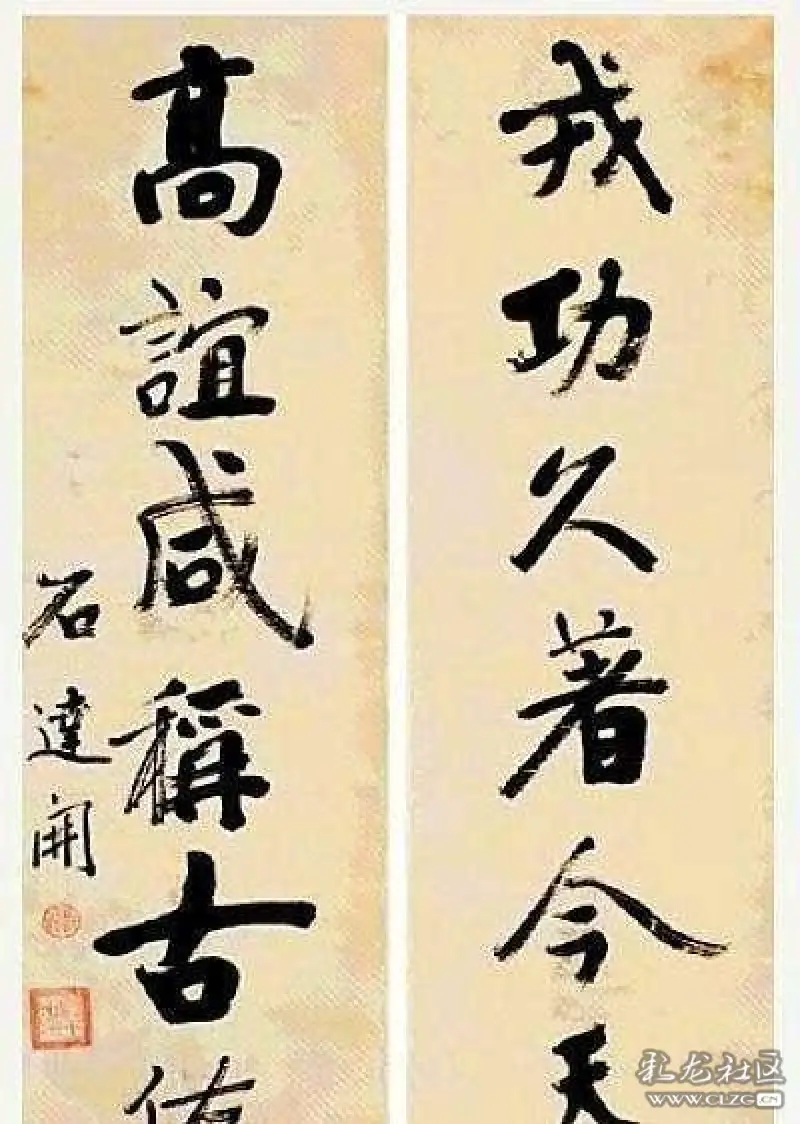 戎功久著今天
高誼咸稱古
石達開
彩龙社区
WWW.CLZG.CN